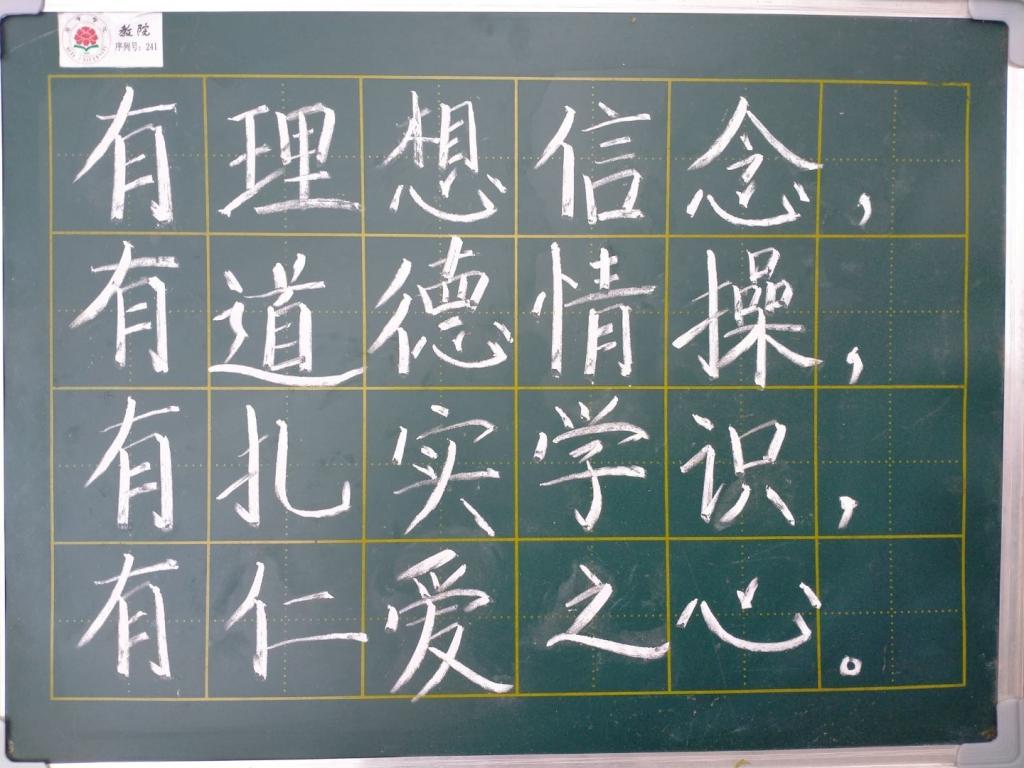 教院
序列号：241
有理想信念，
有道德情操，
有扎实学识，
有仁爱之心。